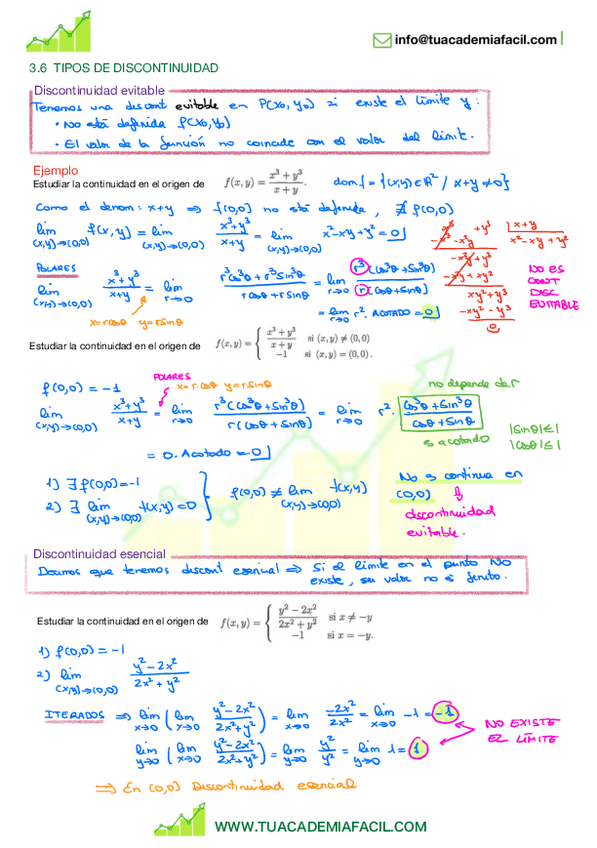 info@tuacademiafacil.com
3.6 TIPOS DE DISCONTINUIDAD
Discontinuidad evitable
Tenemos una discont evitable en P(x₀, y₀) si existe el límite y:
• No está definida f(x₀,y₀)
• El valor de la función no coincide con el valor del límite.
Ejemplo
Estudiar la continuidad en el origen de f(x,y) = (x³ + y³)/(x + y). dom f = {(x,y) ∈ ℝ² / x+y ≠ 0}
Como el denom: x+y ⇒ f(0,0) no está definida, ∄ f(0,0)
lim (x,y)→(0,0) f(x,y) = lim (x,y)→(0,0) (x³+y³)/(x+y) = lim (x,y)→(0,0) x²-xy+y² = 0
x³ + y³ | x+y
-x³ -x²y x²-xy+y²
-x²y + y³
+x²y + xy²
xy² + y³
-xy² - y³
0
POLARES
lim (x,y)→(0,0) (x³+y³)/(x+y) = lim r→0 (r³cos³θ + r³sin³θ)/(r cosθ + r sinθ) = lim r→0 r³(cos³θ + sin³θ)/r(cosθ + sinθ)
x = r cosθ y = r sinθ
= lim r→0 r². ACOTADO = 0
NO ES
CONT
DISC
EVITABLE
Estudiar la continuidad en el origen de f(x,y) = { (x³ + y³)/(x + y) si (x,y) ≠ (0,0)
-1 si (x,y) = (0,0).
f(0,0) = -1
POLARES
x = r cosθ y = r sinθ
no depende de r
lim (x,y)→(0,0) (x³+y³)/(x+y) = lim r→0 r³(cos³θ + sin³θ)/r(cosθ + sinθ) = lim r→0 r². (cos³θ + sin³θ)/(cosθ + sinθ)
es acotado
|sinθ| ≤ 1
|cosθ| ≤ 1
= 0. Acotado = 0
1) ∃ f(0,0) = -1
2) ∃ lim (x,y)→(0,0) f(x,y) = 0
f(0,0) ≠ lim (x,y)→(0,0) f(x,y)
No es continua en
(0,0) ⇓
discontinuidad
evitable.
Discontinuidad esencial
Decimos que tenemos discont esencial ⇒ Si el límite en el punto NO
existe, su valor no es finito.
Estudiar la continuidad en el origen de f(x,y) = { (y² − 2x²)/(2x² + y²) si x ≠ −y
-1 si x = −y.
1) f(0,0) = -1
2) lim (x,y)→(0,0) (y² - 2x²)/(2x² + y²)
ITERADOS ⇒ lim x→0 ( lim y→0 (y²-2x²)/(2x²+y²) ) = lim x→0 -2x²/2x² = lim x→0 -1 = -1
lim y→0 ( lim x→0 (y²-2x²)/(2x²+y²) ) = lim y→0 y²/y² = lim y→0 1 = 1
NO EXISTE
EL LÍMITE
⇒ En (0,0) Discontinuidad esencial
WWW.TUACADEMIAFACIL.COM